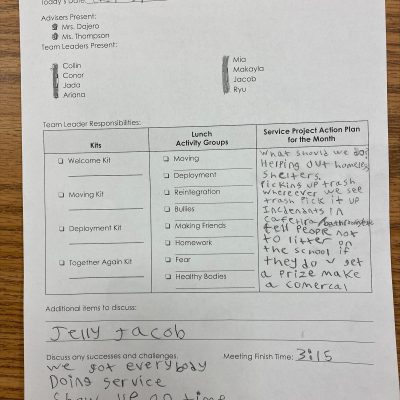 Today's Date:
Advisers Present:
Mrs. Dajero
Ms. Thompson
Team Leaders Present:
Collin
Conor
Jada
Ariana
Mia
Makayla
Jacob
Ryu
Team Leader Responsibilities:
Kits
Welcome Kit
Moving Kit
Deployment Kit
Together Again Kit
Lunch
Activity Groups
Moving
Deployment
Reintegration
Bullies
Making Friends
Homework
Fear
Healthy Bodies
Service Project Action Plan
for the Month
what should we do?
Helping out homeless
shelters,
Picking up trash
whereever we see
trash Pick it up
Incidenants in
cafetira/bathrooms
tell People not
to litter on
the school if
they do u get
a prize make
a comercal
Additional items to discuss:
Jelly Jacob
Discuss any successes and challenges.
Meeting Finish Time: 3:15
we got everybody
Doing service
Show up on time